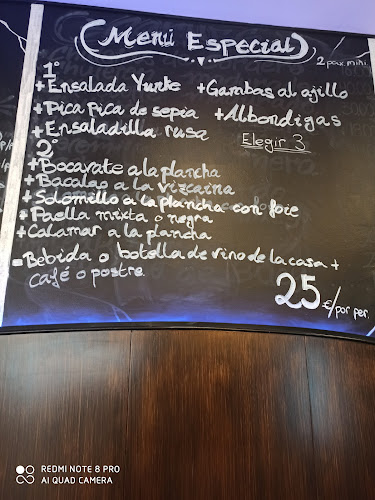 Menú Especial
2 pax. mini.
1º
+Ensalada Yunke +Gambas al ajillo
+Pica pica de sepia +Albondigas
+Ensaladilla rusa
Elegir 3
2º
+Bocavate a la plancha
+Bacalao a la vizcaina
+Solomillo a la plancha con foie
+Paella mixta o negra
+Calamar a la plancha
=Bebida o botella de vino de la casa +
café o postre
25 €/por per.
REDMI NOTE 8 PRO
AI QUAD CAMERA